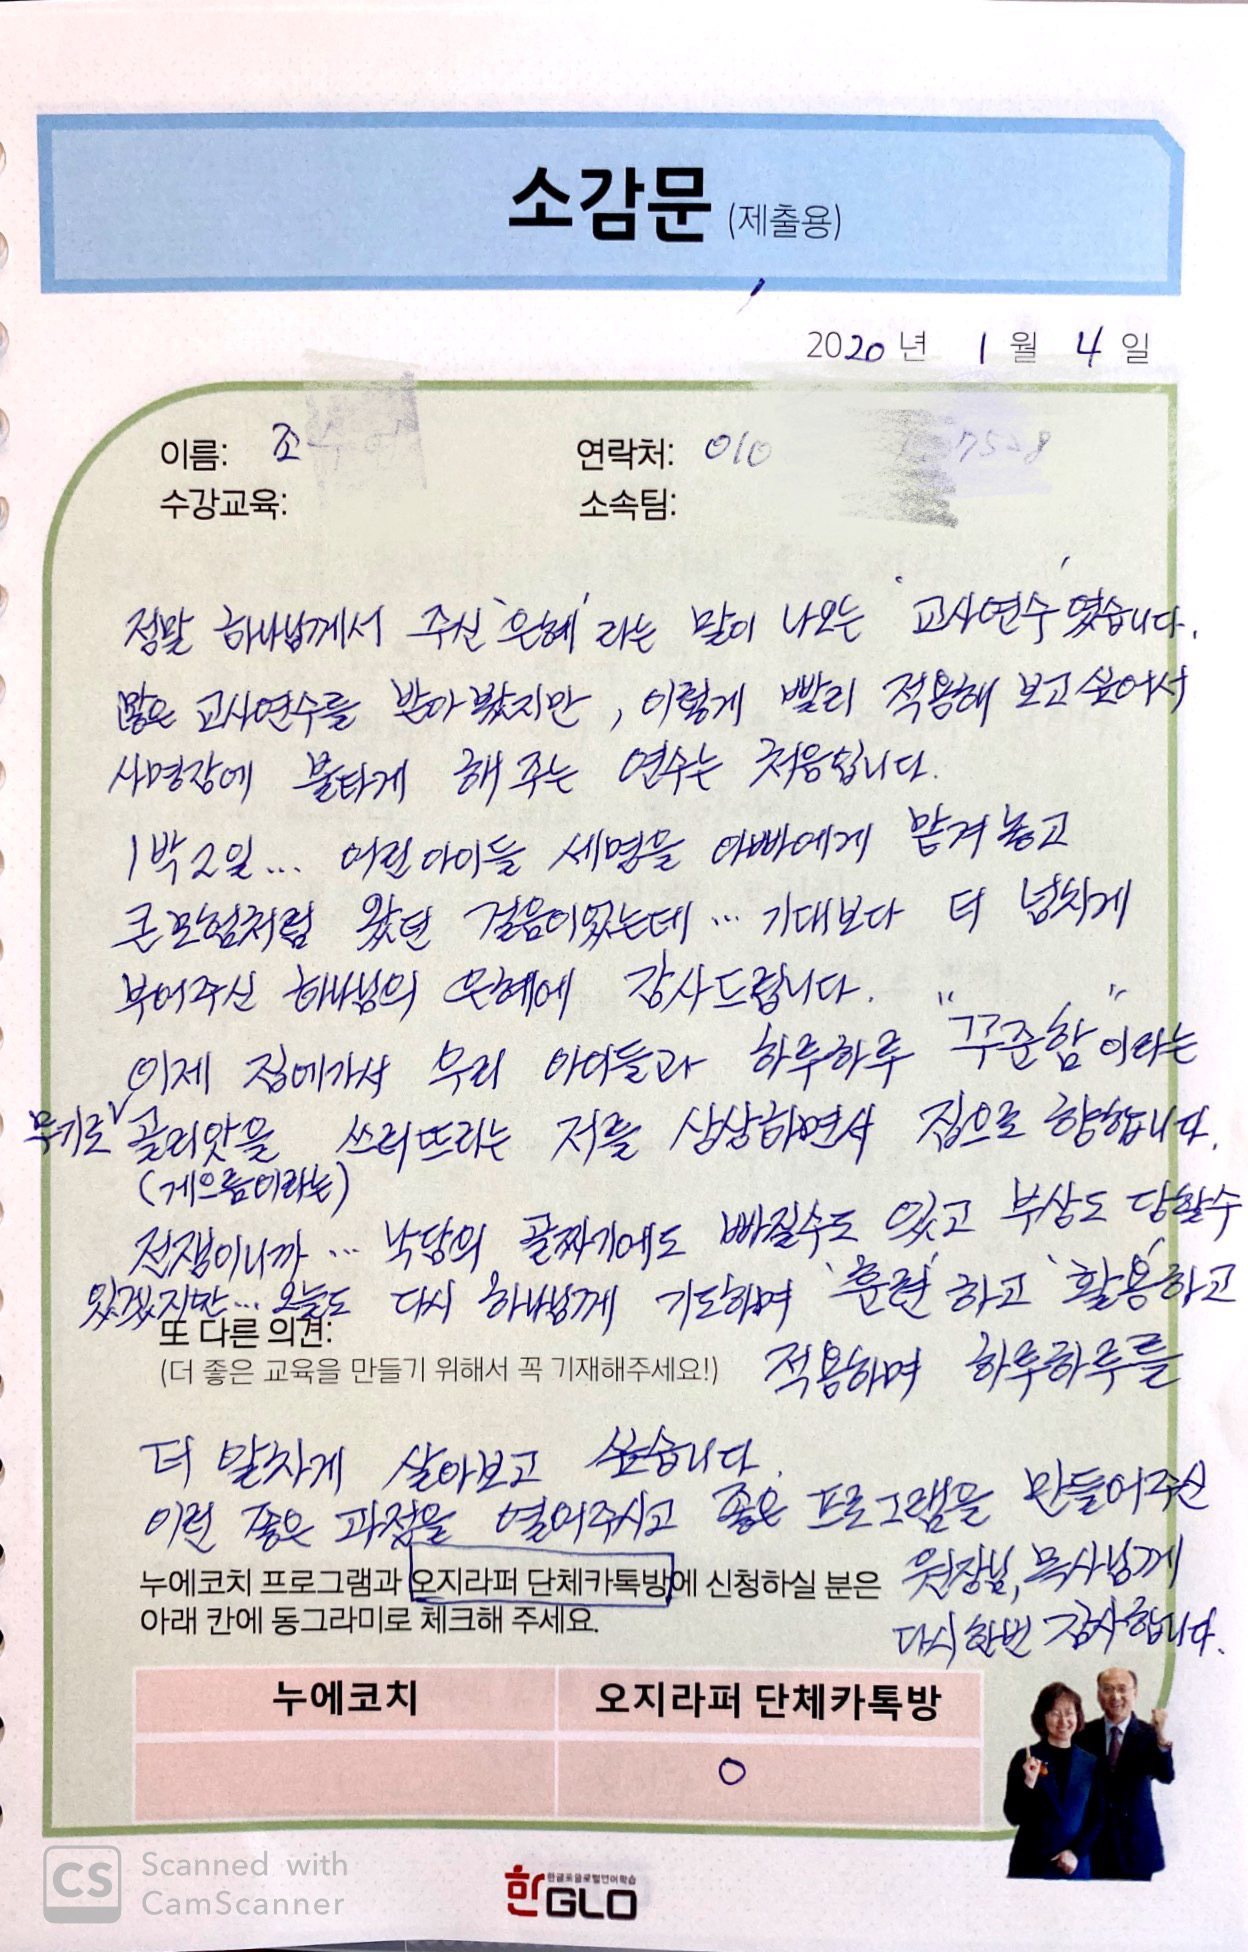 소감문 (제출용)
2020년 1월 4일
이름: 조
연락처: 010
수강교육:
소속팀:
정말 하나님께서 주신 '은혜'라는 말이 나오는 '교사연수'였습니다.
많은 교사연수를 받아 봤지만, 이렇게 빨리 적용해 보고싶어서
사명장에 불타게 해 주는 연수는 처음입니다.
1박2일... 어린아이들 세명을 아빠에게 맡겨놓고
큰모험처럼 왔던 걸음이었는데... 기대보다 더 넘치게
부어주신 하나님의 은혜에 감사드립니다.
이제 집에가서 우리 아이들과 하루하루 "꾸준함"이라는
무기로 골리앗을 쓰러뜨리는 저를 상상하면서 집으로 향합니다.
(게으름이라는)
전쟁이니까... 낙담의 골짜기에도 빠질수도 있고 부상도 당할수
있겠지만... 오늘도 다시 하나님께 기도하며 '훈련'하고 '활용'하고
또 다른 의견:
(더 좋은 교육을 만들기 위해서 꼭 기재해주세요!)
적용하며 하루하루를
더 알차게 살아보고 싶습니다.
이런 좋은 과정을 열어주시고 좋은 프로그램을 만들어주신
원장님, 목사님께
다시한번 감사합니다.
누에코치 프로그램과 오지라퍼 단체카톡방에 신청하실 분은
아래 칸에 동그라미로 체크해 주세요.
누에코치
오지라퍼 단체카톡방
O
CS Scanned with
CamScanner
한글로글로벌언어학습
한GLO